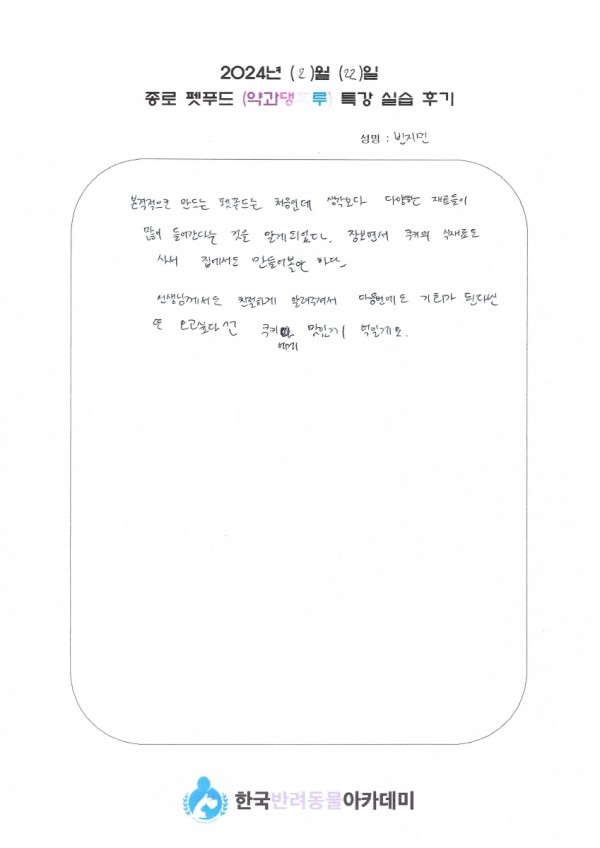 2024년 (2)월 (22)일
종로 펫푸드 (약과댕후루) 특강 실습 후기
성명 : 반지민
본격적으로 만드는 펫푸드는 처음인데 생각보다 다양한 재료들이
많이 들어간다는 것을 알게되었다. 장보면서 쿠키의 식재료도
사서 집에서도 만들어봐야 하다
선생님께서도 친절하게 알려주셔서 다음번에도 기회가 된다면
또 오고싶다 쿠키 맛있게 먹일게요.
예삐
한국반려동물아카데미